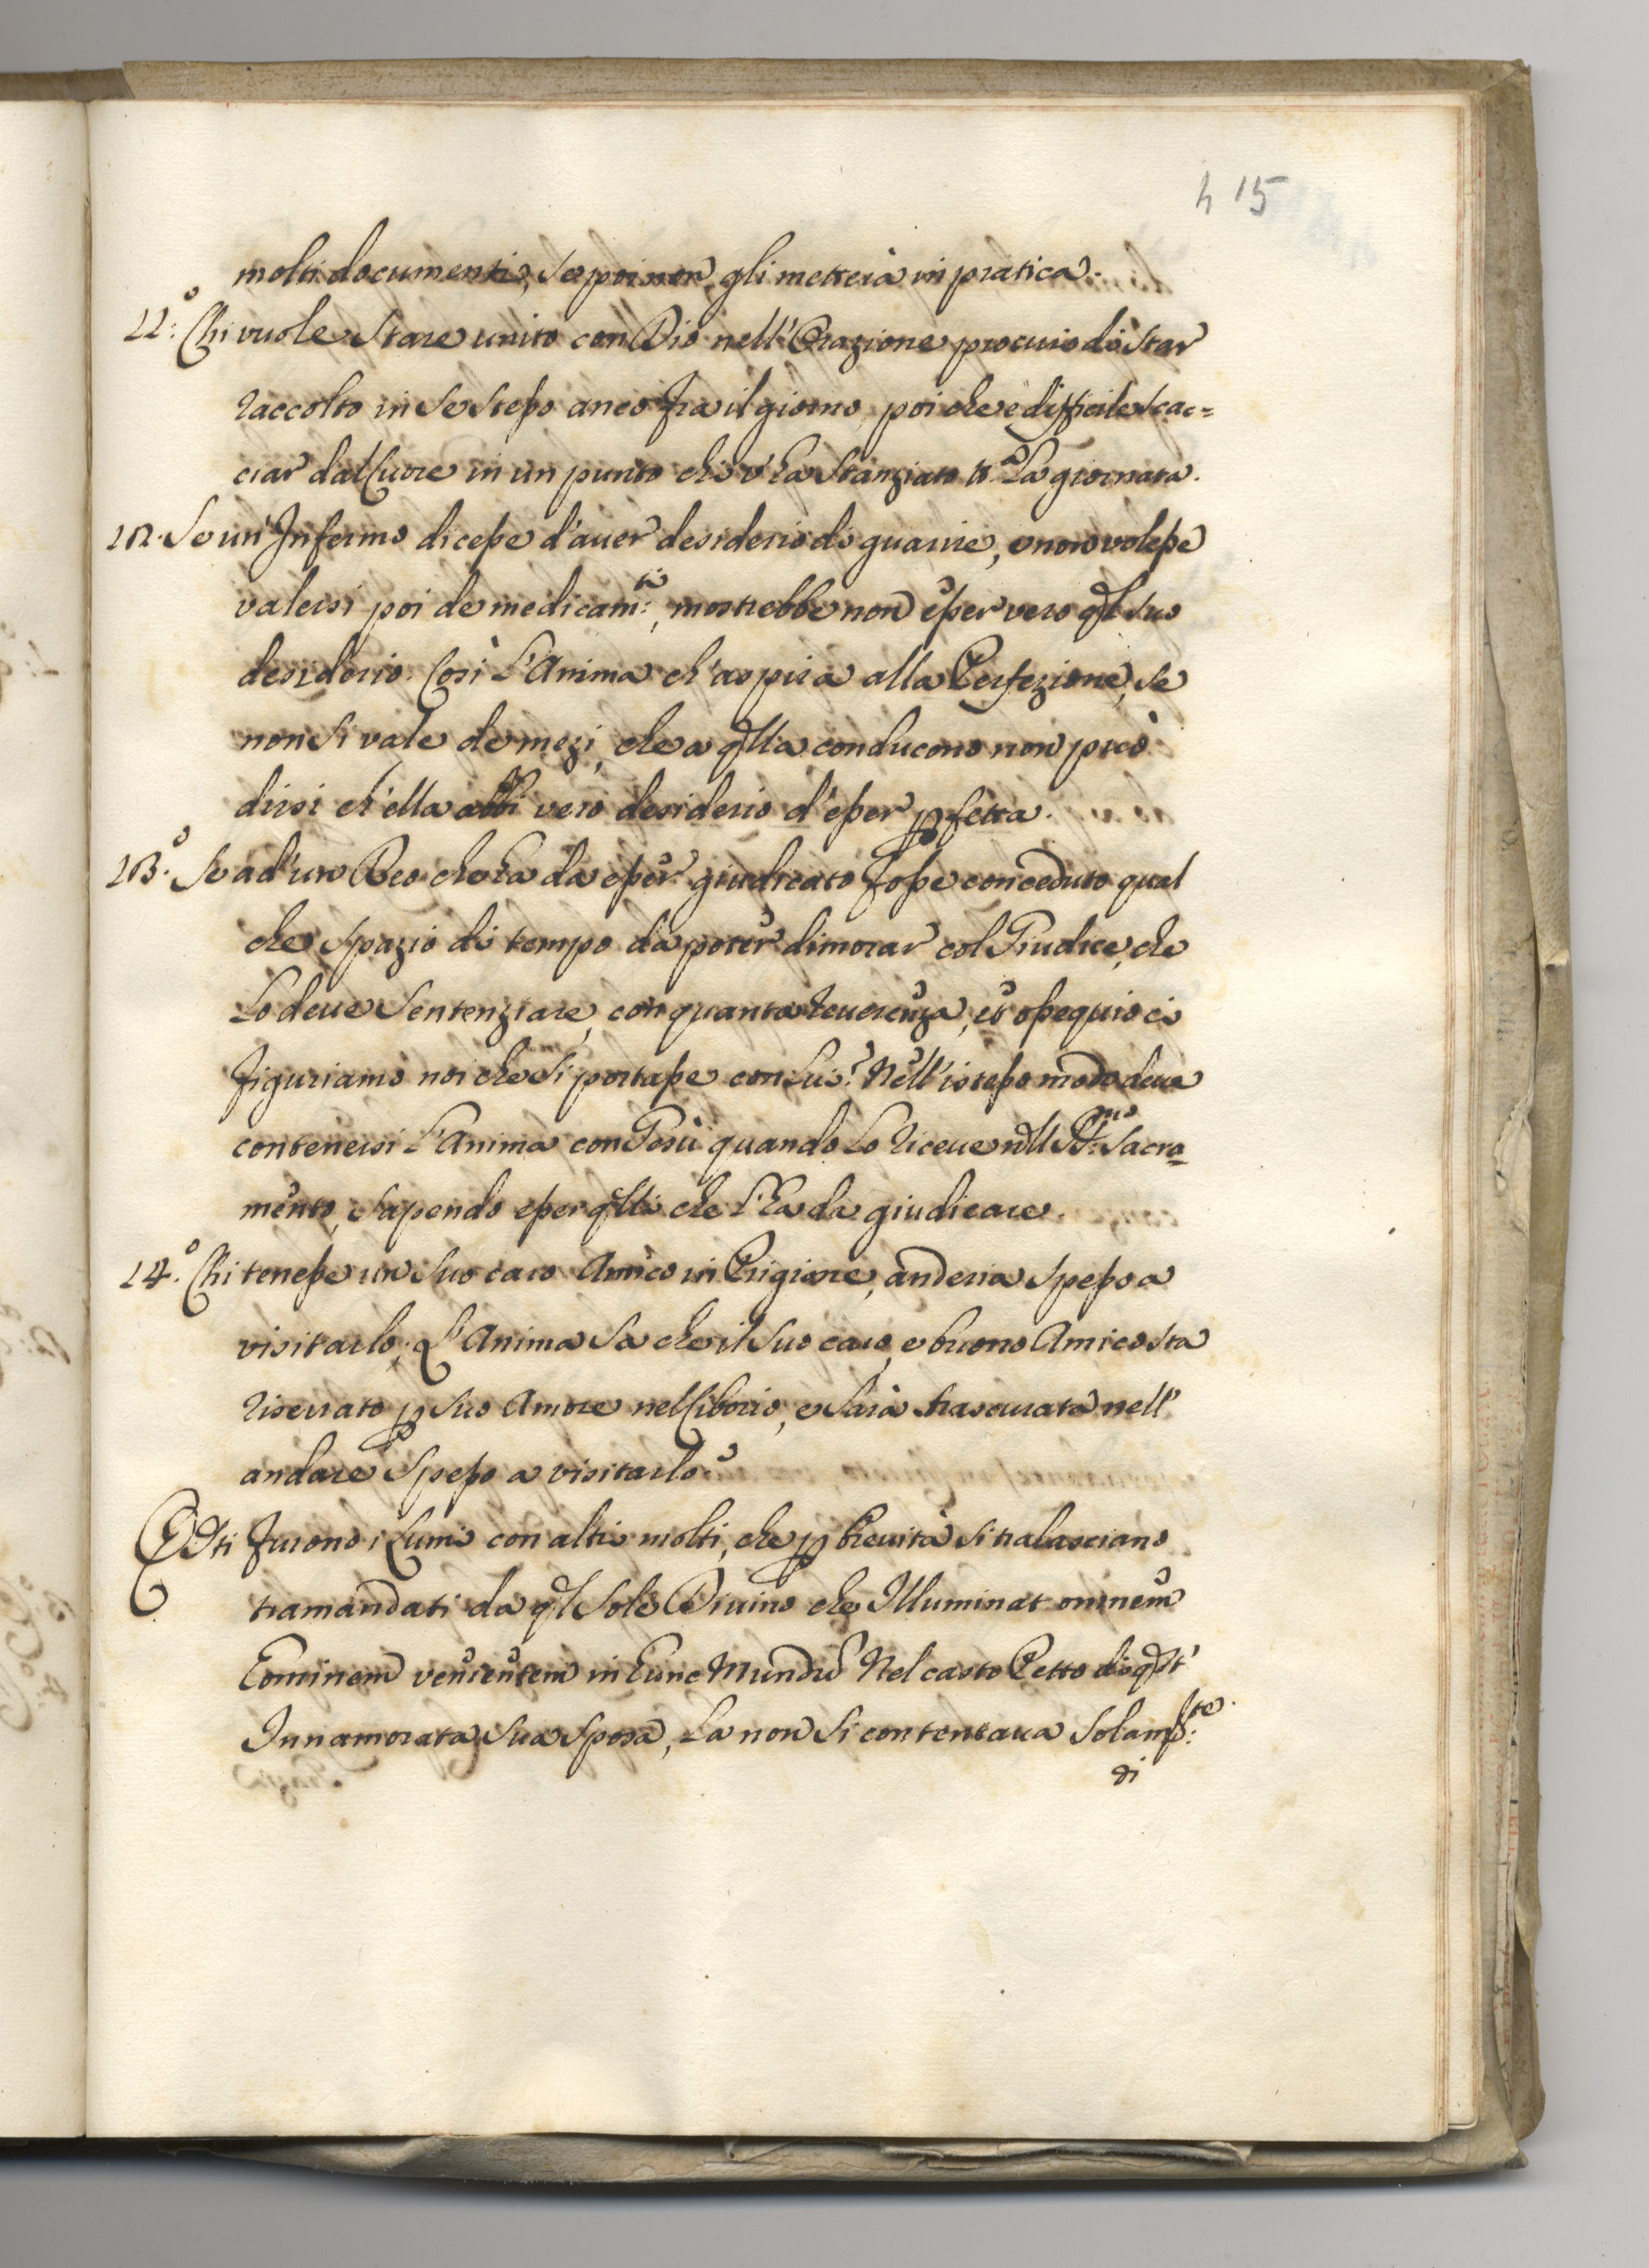 415
molti documenti, se poi non gli metterà in pratica.
11.º Chi vuole stare unito con Dio nell'Orazione procuri di star
raccolto in se stesso anco fra il giorno, poi che è difficile scac=
ciar dal Cuore in un punto chi v'ha stanziato tª la giornata.
12. Se un'Infermo dicesse d'auer desiderio di guarire, e non volesse
valersi poi de medicam:ti, mostrebbe non esser vero ql suo
desiderio. Così l'Anima ch'aspira alla Perfezione, se
non si vale de mezi, che a qlla conducono non può
dirsi ch'ella abbi vero desiderio d'esser pfetta.
13.º Se ad'un Reo che ha da esser giudicato fosse conceduto qual
che spazio di tempo da poter dimorar col Giudice, che
lo deue sentenziare, con quanta reuerenza, et ossequio ci
figuriamo noi che si portasse con lui? Nell'istesso modo deue
contenersi l'Anima con Gesù quando lo riceue nll SS:mo Sacra=
mento, sapendo esser qlli che l'ha da giudicare.
14.º Chi tenesse un suo caro Amico in Prigione, anderia spesso a
visitarlo; L'Anima sa che il suo caro, e buono Amico sta
riserrato p suo Amore nel Ciborio, e sarà trascurata nell'
andare spesso a visitarlo?
Qsti furono i Lumi con altri molti, che p breuità si tralasciano
tramandati da ql Sole Diuino che Illuminat omnem
hominem venientem in hunc Mundũ Nel casto Petto di qst'
Innamorata sua Sposa, La non si contentaua solamte:
di